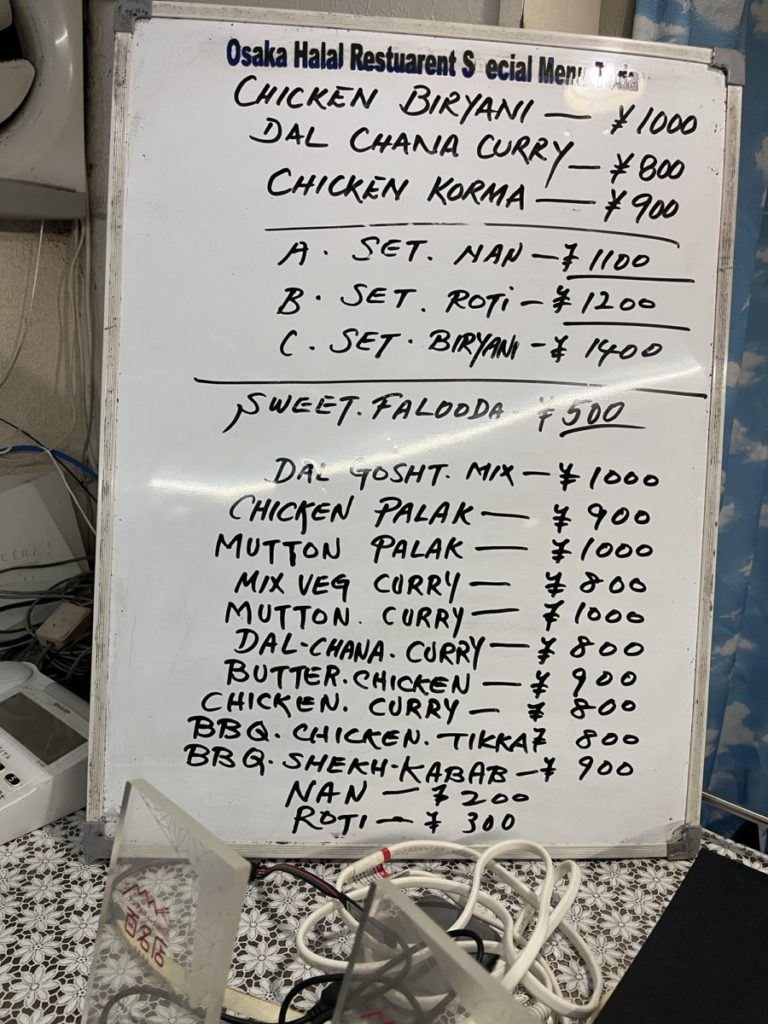 Osaka Halal Restuarent S ecial Menu Toda
CHICKEN BIRYANI — ¥1000
DAL CHANA CURRY — ¥800
CHICKEN KORMA — ¥900
A. SET. NAN — ¥1100
B. SET. ROTI — ¥1200
C. SET. BIRYANI - ¥1400
SWEET. FALOODA ¥500
DAL GOSHT. MIX — ¥1000
CHICKEN PALAK — ¥900
MUTTON PALAK — ¥1000
MIX VEG CURRY — ¥800
MUTTON. CURRY — ¥1000
DAL-CHANA. CURRY — ¥800
BUTTER. CHICKEN — ¥900
CHICKEN. CURRY — ¥800
BBQ. CHICKEN. TIKKA ¥800
BBQ. SHEKH-KABAB — ¥900
NAN — ¥200
ROTI — ¥300
百名店
SHARP